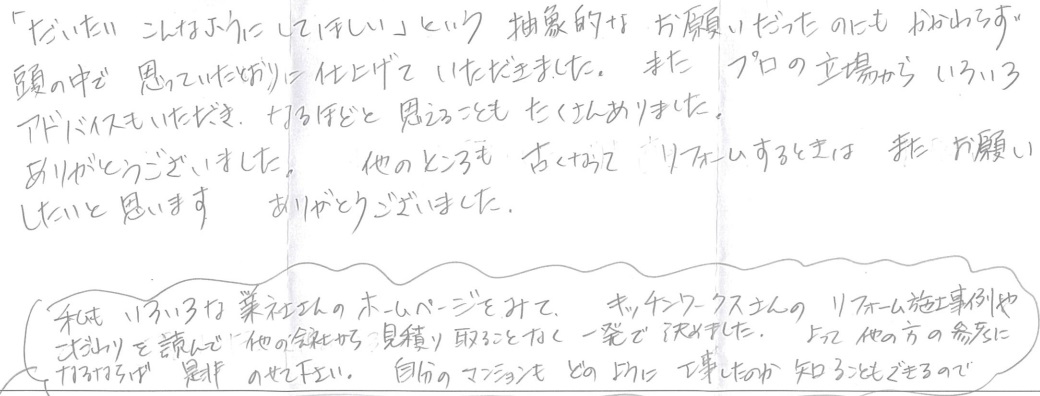 「だいたい こんなようにしてほしい」という 抽象的な お願いだったのにも かかわらず
頭の中で 思っていたとおりに 仕上げて いただきました。 また プロの立場から いろいろ
アドバイスもいただき、なるほどと 思えることも たくさんありました。
ありがとうございました。 他のところも 古くなって リフォームするときは また お願い
したいと思います ありがとうございました。
私も いろいろな 業社さんの ホームページをみて、 キッチンワークスさんの リフォーム施工事例や
こだわりを読んで 他の会社から 見積り取ることなく 一発で 決めました。 よって 他の方の参考に
なるならば 是非 のせて下さい。 自分の マンションも どのように 工事したのか 知ることもできるので